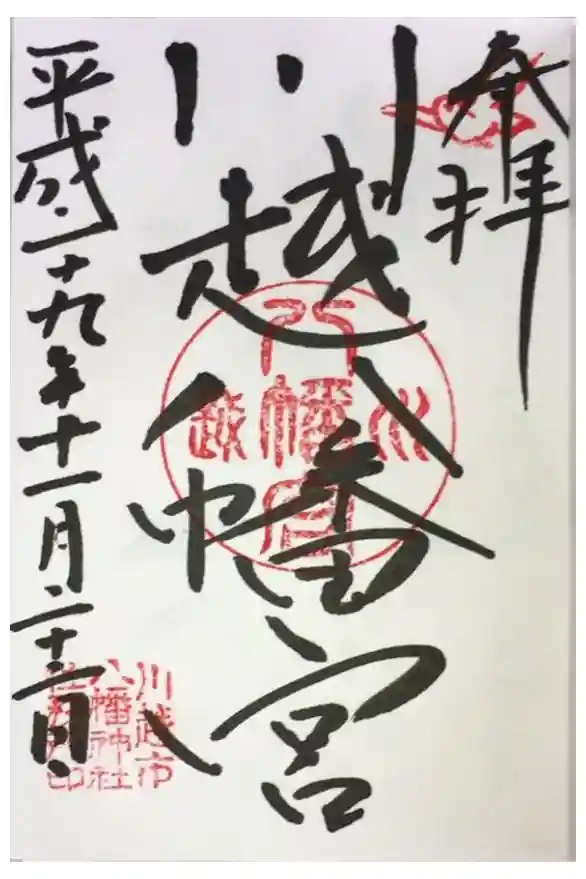 奉拝
川越八幡宮
川越八幡宮
平成二十九年十一月二十三日
川越市
八幡神社
社務所印